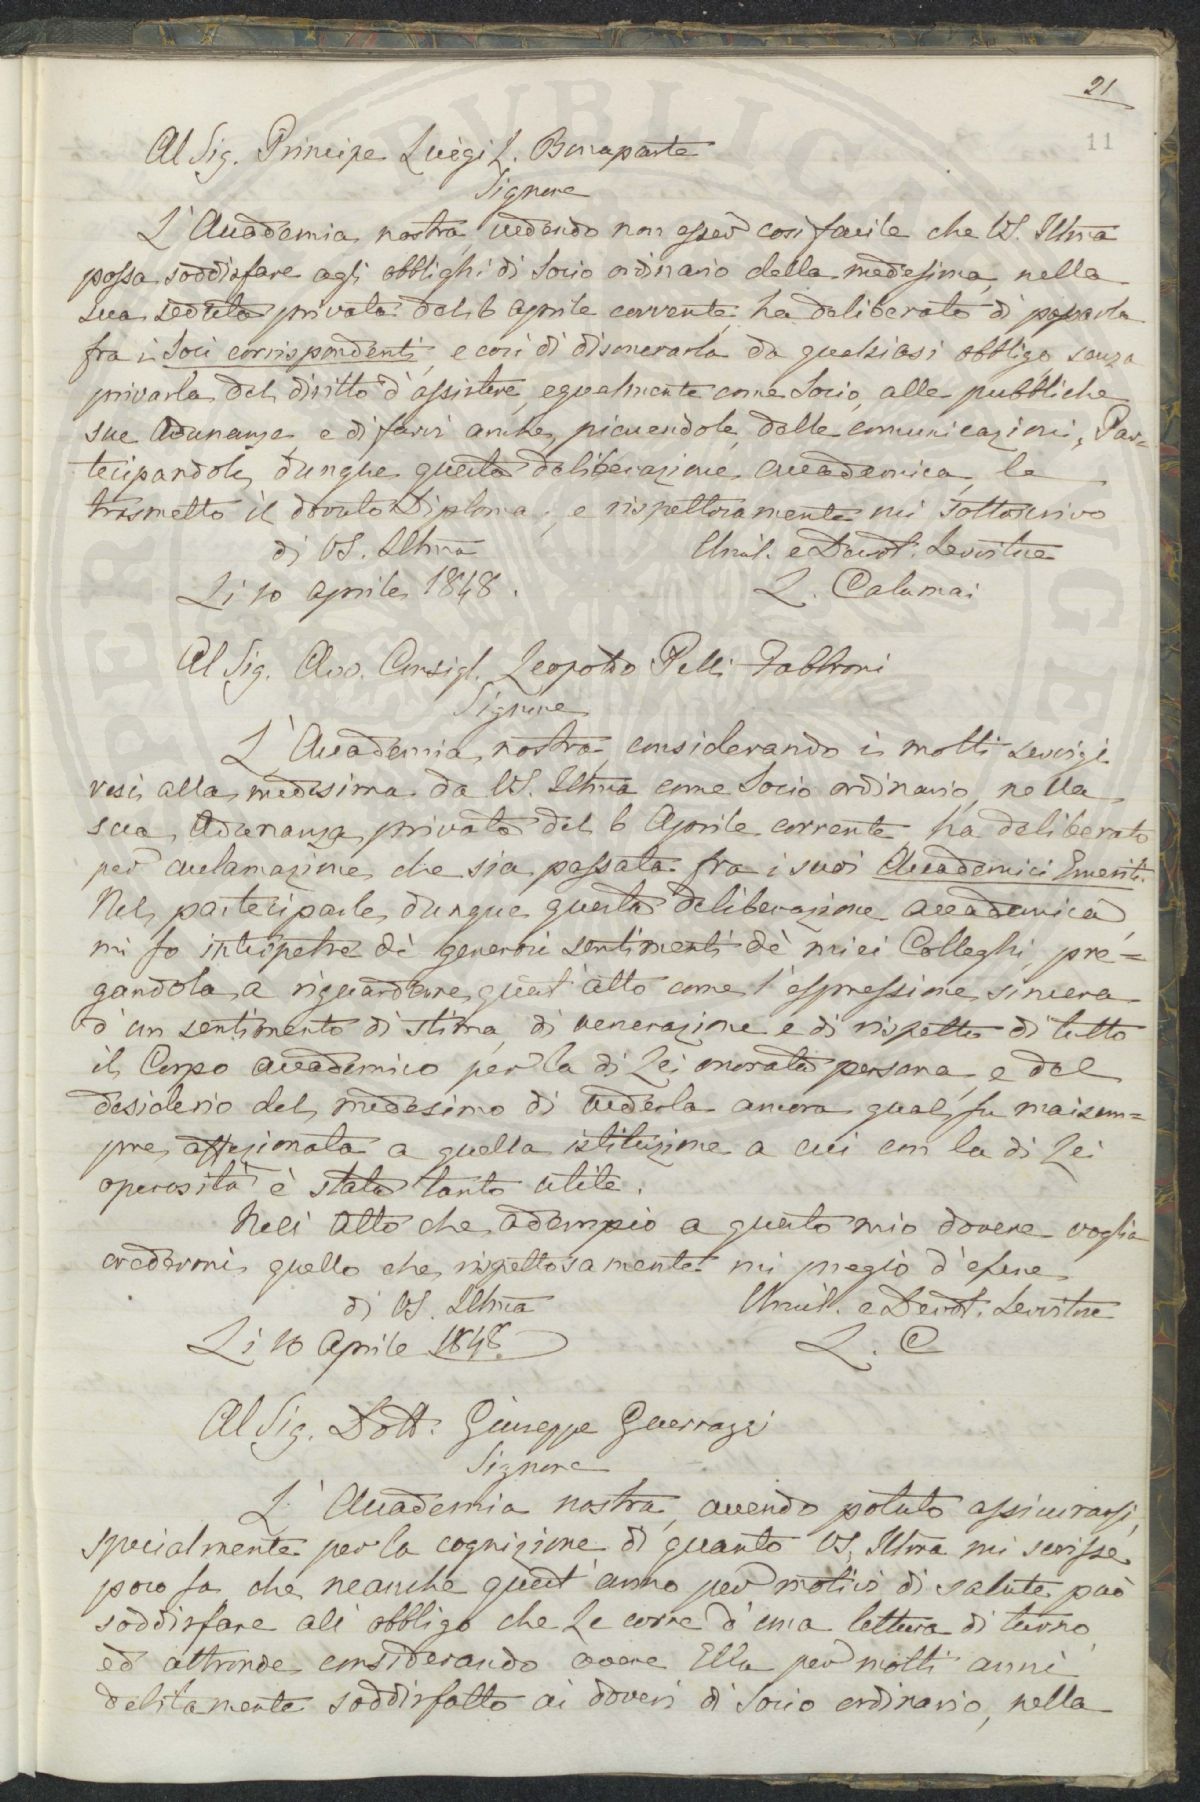 21
11
Al Sig. Principe Luigi L. Bonaparte
Signore
L'Accademia nostra, vedendo non esser così facile che VS. Illma
possa soddisfare agli obblighi di Socio ordinario della medesima, nella
sua seduta privata del 6 aprile corrente ha deliberato di passarla
fra i Soci corrispondenti, e così di disonerarla da qualsiasi obbligo, senza
privarla del diritto d'assistere, egualmente come Socio, alle pubbliche
sue Adunanze e di farvi anche, piacendole, delle comunicazioni. Par=
tecipandole dunque questa deliberazione accademica, le
trasmetto il dovuto Diploma; e rispettosamente mi sottoscrivo
di VS. Illma
Umil. e Devot. Servitore
Li 10 aprile 1848.
L. Calamai
Al Sig. Avv. Consigl. Leopoldo Pelli Fabbroni
Signore
L'Accademia nostra, considerando i molti servigi
resi alla medesima da VS. Illma come Socio ordinario, nella
sua Adunanza privata del 6 Aprile corrente ha deliberato
per acclamazione che sia passata fra i suoi Accademici Emeriti.
Nel parteciparle dunque questa deliberazione accademica,
mi fo interpetre dè generosi sentimenti dè miei Colleghi, pre=
gandola a riguardare quest'atto come l'espressione sincera
d'un sentimento di stima, di venerazione e di rispetto di tutto
il Corpo accademico per la di Lei onorata persona, e del
desiderio del medesimo di vederla ancora qual fu maisem=
pre affezionata a quella istituzione a cui con la di Lei
operosità è stata tanto utile.
Nell' atto che adempio a questo mio dovere voglia
credermi quello che rispettosamente mi pregio d'essere
di VS. Illma
Umil. e Devot. Servitore
Li 10 Aprile 1848.
L. C
Al Sig. Dott. Giuseppe Guerrazzi
Signore
L'Accademia nostra, avendo potuto assicurarsi,
specialmente per la cognizione di quanto VS. Illma mi scrisse
poco fa, che neanche quest'anno per motivi di salute può
soddisfare all' obbligo che Le corre d'una lettura di turno,
ed altronde considerando avere Ella per molti anni
debitamente soddisfatto ai doveri di Socio ordinario, nella